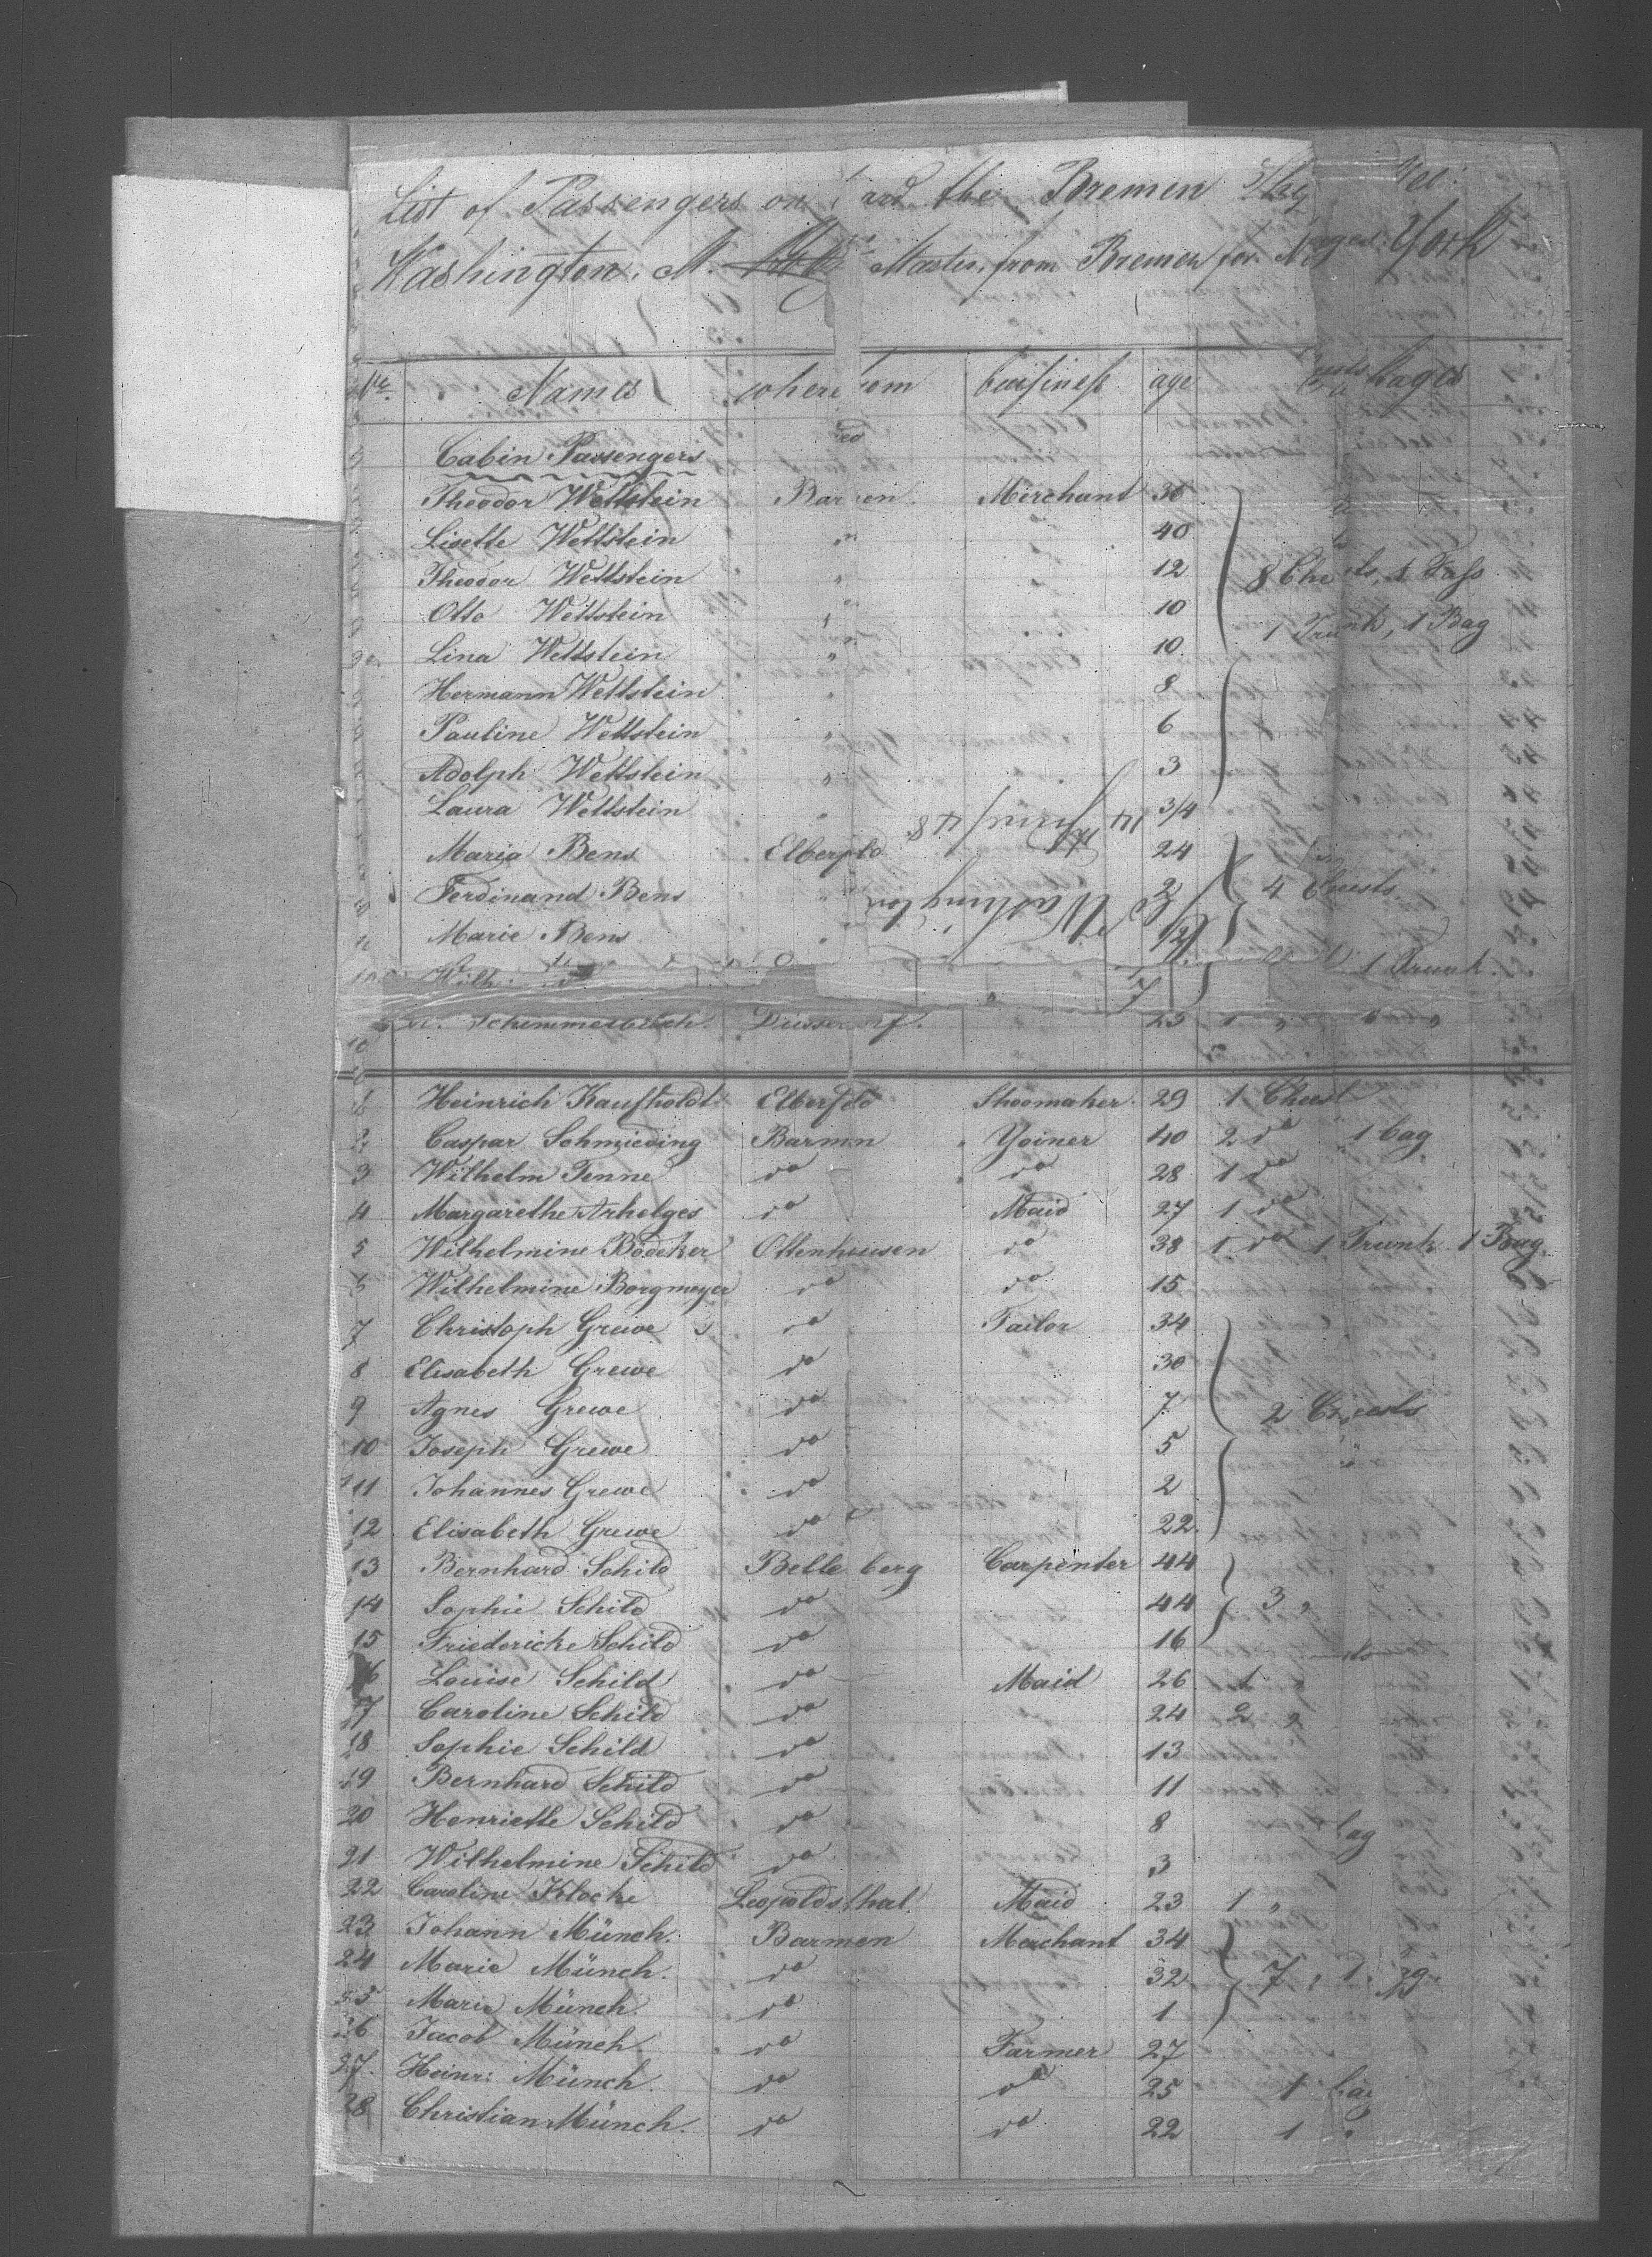 List of Passengers on the Bremen
Washington, M. Master, from Bremen for New York
No. Names where from business age
Cabin Passengers
Theodor Wettstein Barmen Merchant 36
Lisette Wettstein " 40
Theodor Wettstein " 12 8 Chests, 1 Fass
Otto Wettstein " 10 1 Trunk, 1 Bag
Lina Wettstein " 10
Hermann Wettstein " 8
Pauline Wettstein " 6
Adolph Wettstein " 3
Laura Wettstein " 3/4
14 48
Maria Bens Elberfeld 24
Ferdinand Bens " 2 4 Chests
Washington
Marie Bens " 1/2
Wilh. 1 Trunk
Schimmelbusch. Dusseldorf. 25 1 "
1 Heinrich Kaufholdt Elberfeld Shoomaker 29 1 Chest
2 Caspar Schmieding Barmen Yoiner 40 2 do 1 bag
3 Wilhelm Tenne do do 28 1 do
4 Margarethe Arhelges do Maid 27 1 do
5 Wilhelmine Bödeker Ottenhausen do 38 1 do 1 Trunk 1 Bag
6 Wilhelmine Borgmeyer do do 15
7 Christoph Grewe do Tailor 34
8 Elisabeth Grewe do 30
9 Agnes Grewe do 7 2 Chests
10 Joseph Grewe do 5
11 Johannes Grewe do 2
12 Elisabeth Grewe do 22
13 Bernhard Schild Belle berg Carpenter 44
14 Sophie Schild do 44 3 "
15 Friedericke Schild do 16
16 Louise Schild do Maid 26 1 "
17 Caroline Schild do 24 2 "
18 Sophie Schild do 13
19 Bernhard Schild do 11
20 Henriette Schild do 8
21 Wilhelmine Schild do 3
22 Caroline Klocke Leopoldsthal Maid 23 1 "
23 Johann Münch. Barmen Merchant 34
24 Marie Münch. do 32 7 "
25 Marie Münch. do 1
26 Jacob Münch. do Farmer 27
27 Heinr: Münch. do do 25 1 bag
28 Christian Münch. do do 22 1 "